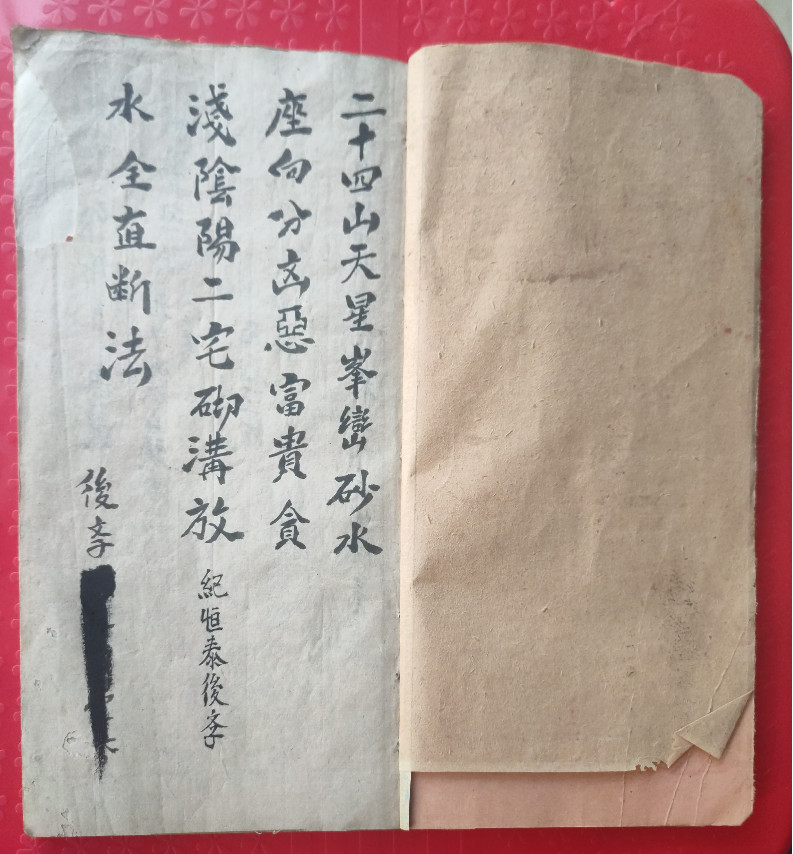 二十四山天星峯巒砂水
座向分凶惡富貴貪
淺陰陽二宅砌溝放
紀恒泰後李
水全直断法
後李